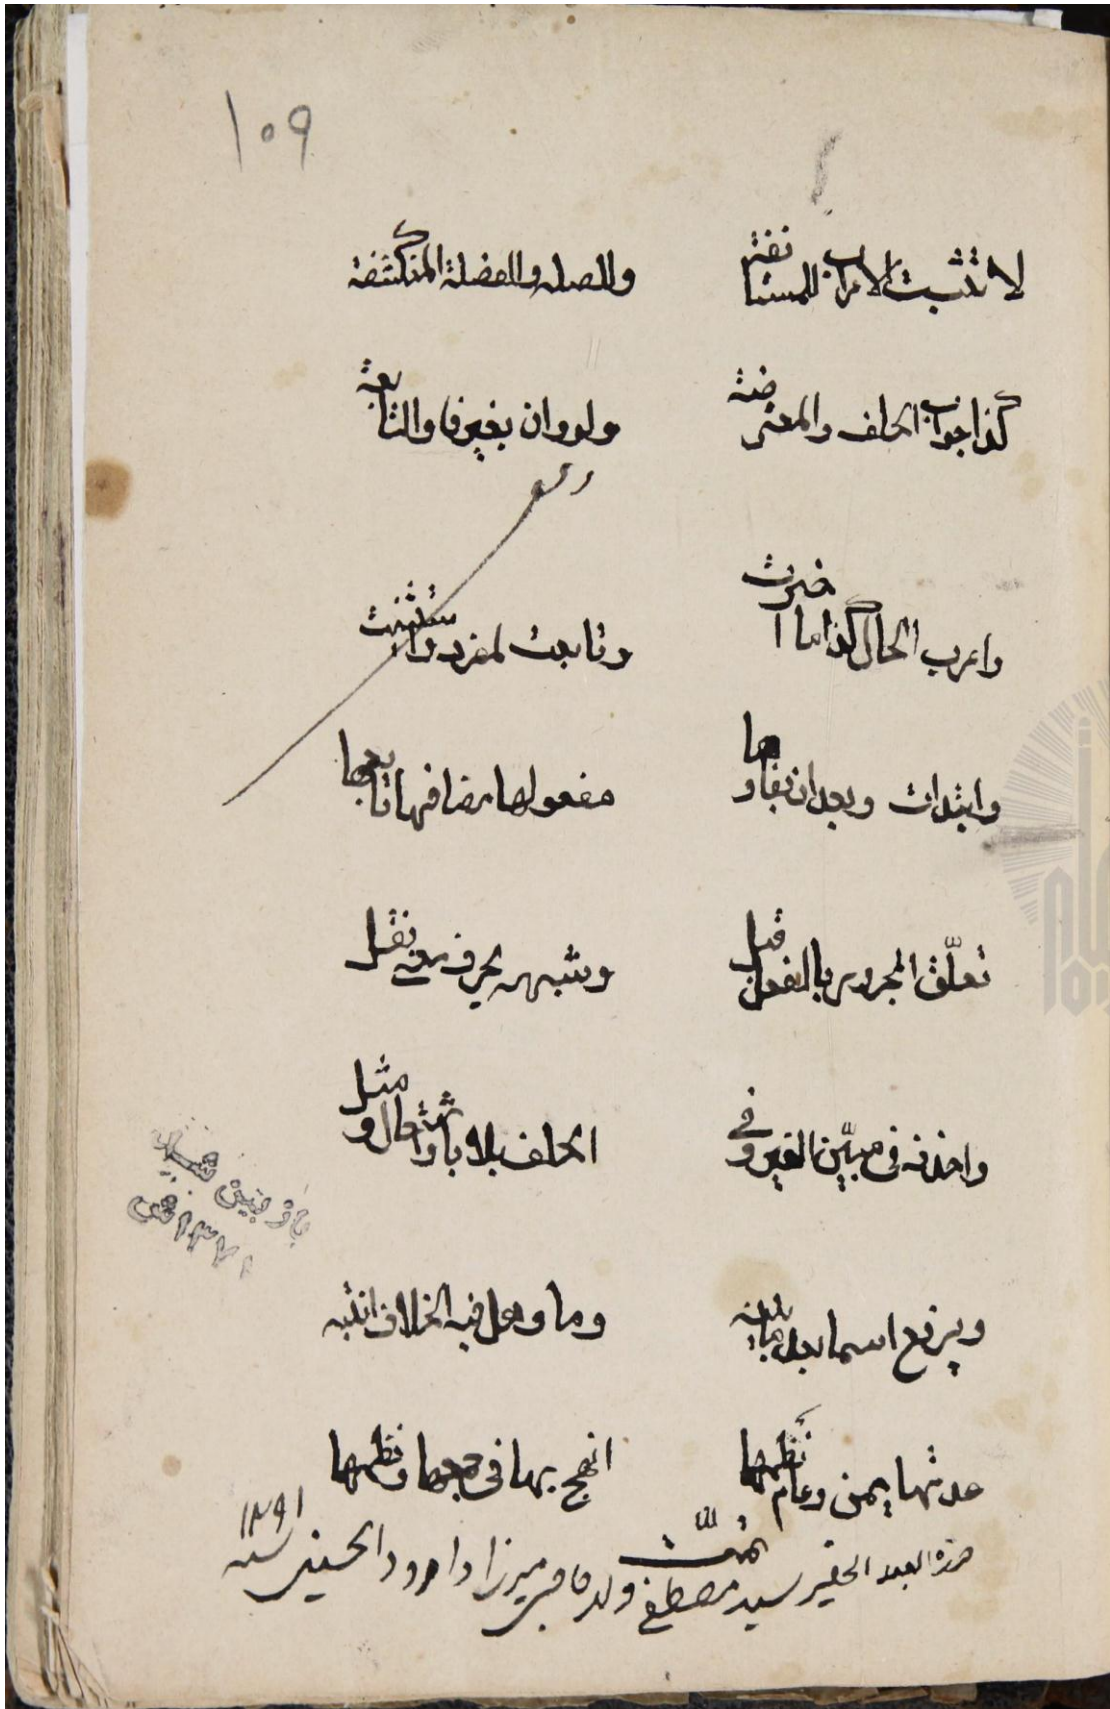 ١٠٩
لا تثبت الاعراب للمستانفة والصله والفضلة المنكشفه
كذا جواب الحلف والمعترضة ولو وان بغير فا والتابعة
واعرب الحال كذا ما اخبرت وتابعت لمفرد واستثنيت
وابتدات وبعد ان بفا و مفعولها مضافها تابعها
تعلّق المجرور بالفعل قبل وشبهه بحرف نقل
واحذفه فى مبيّن الغير وفى الحلف بلا باء حال و مثل
ويرفع اسما بعد وما وهل فيه الخلاف انتبه
عدتها يمن وعام نظمها انهج بها فى حجها وفطمها
تمت
حرره العبد الحقير سيد مصطفى ولد ميرزا داوود الحسينى سنه ١٢٩١
بازبين شد
١٣٧١